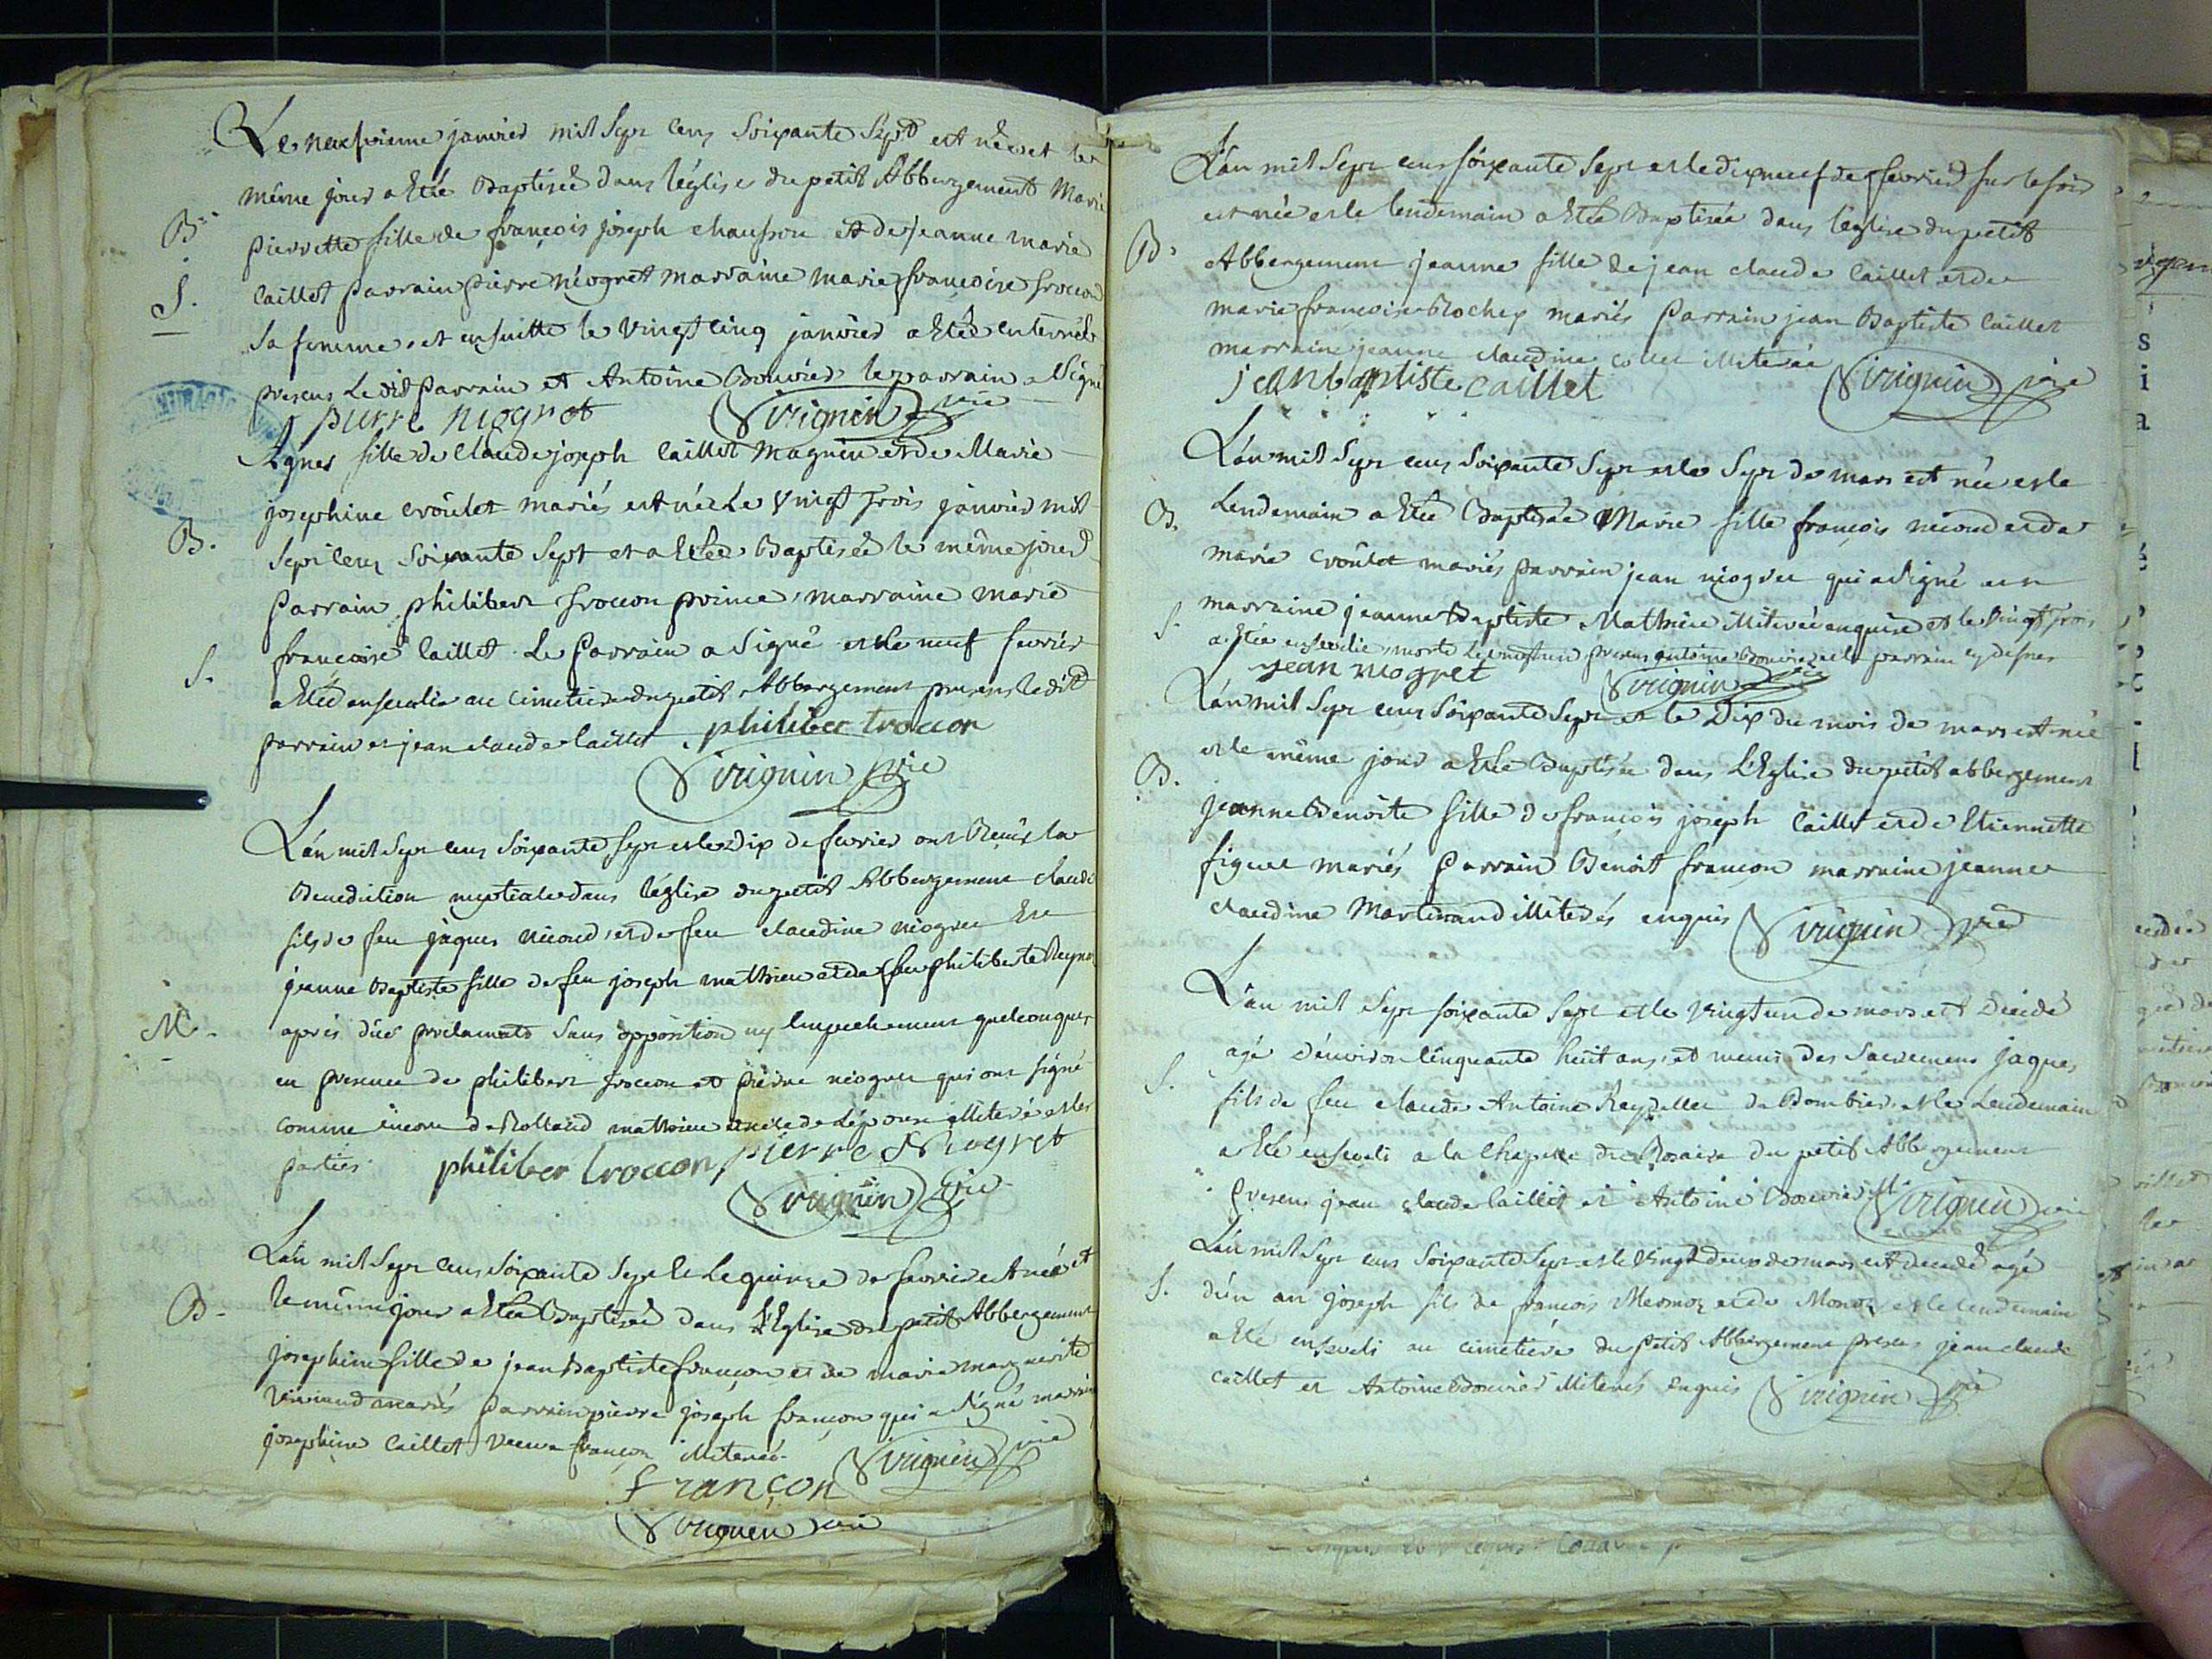 Le neufvieme janvier mil sept cens soixante sept est née et le
même jour a Eté Baptisée dans l'église du petit Abbergement Marie
B.
pierrette fille de françois joseph chausson et de jeanne marie
caillet parrain pierre niogret marraine marie françoise troccon
S.
sa femme, et ensuitte le vingt cinq janvier a Eté enterrée
presens Le dit parrain et Antoine Bouvier le parrain a signé
pierre niogret Sirignin vic
Agnes fille de Claude joseph Caillet Magnin et de Marie
josephine croûlet mariés est née Le vingt trois janvier mil
B.
sept cens soixante sept et a Etée Baptisée le même jour
parrain philibert troccon prince, marraine marie
françoise Caillet Le parrain a signé et le neuf fevrier
S.
a Eté ensevelie au cimetiere du petit Abbergement presens le dit
parrain et jean claude caillet philiber troccon
Sirignin vic
L'an mil sept cens soixante sept et le dix de fevrier ont Reçus la
Benediction nuptiale dans l'église du petit Abbergement claude
fils de feu jaques nicoud, et de feu claudine niogret Et
jeanne Baptiste fille de feu joseph mathieu et de feu philiberte Reyno
M.
après düe proclamats sans opposition ny Empechement quelconques
en presence de philibert troccon et pierre niogret qui ont signé
comme encore de Rolland mathieu de L'épouse illiteré et les
parties philiber troccon, pierre Niogret
Sirignin vic
L'an mil sept cens soixante sept et Le quinze de fevrier est née et
B.
le même jour a Etée Baptisée dans L'Eglise du petit Abbergement
josephine fille de jean Baptiste françon et de marie marguerite
mariés parrain pierre joseph françon qui a signé marraine
josephine Caillet veuve françon illiterée. Sirignin vic
françon
Sirignin vic
L'an mil sept cens soixante sept et le dix neuf de fevrier sur le soir
est née et le lendemain a Etée Baptisée dans l'église du petit
B.
Abbergement jeanne fille de jean claude Caillet et de
marie françoise Rochex mariés parrain jean Baptiste Caillet
marraine jeanne claudine illiterée
jean baptiste caillet Sirignin vic
L'an mil sept cens soixante sept et le sept de mars est née et le
B.
Lendemain a Etée Baptisée Marie fille françois nicoud et de
marie croûlet mariés parrain jean niogret qui a signé et
marraine jeanne Baptiste Mathieu illiterée enquise et le vingt trois
S.
a Etée ensevelie, morte Le vingt un presens antoine Bouvier et le parrain cy dessus
jean niogret Sirignin vic
L'an mil sept cens soixante sept et le Dix du mois de mars est née
et le même jour a Etée Baptisée dans L'Eglise du petit abbergement
B.
jeanne Benoite fille de françois joseph Caillet et de Etiennette
figuet mariés parrain Benoit françon marraine jeanne
claudine Martinand illiterés enquis Sirignin vic
L'an mil sept soixante sept et le vingt un de mars est Decedé
agé d'environ cinquante huit ans, et muni des sacremens jaques
S.
fils de feu claude Antoine Reydellet de Dombier et le Lendemain
a Eté enseveli a la Chapelle du Rosaire du petit Abbergement
presens jean claude Caillet et Antoine Bouvier Sirignin vic
L'an mil sept cens soixante sept et le vingt deux de mars est decedé agé
S.
d'un an joseph fils de françois Mermoz et de Monoz et le lendemain
a Eté enseveli au cimetiére du petit Abbergement presens jean claude
caillet et Antoine Bouvier illiterés enquis Sirignin vic